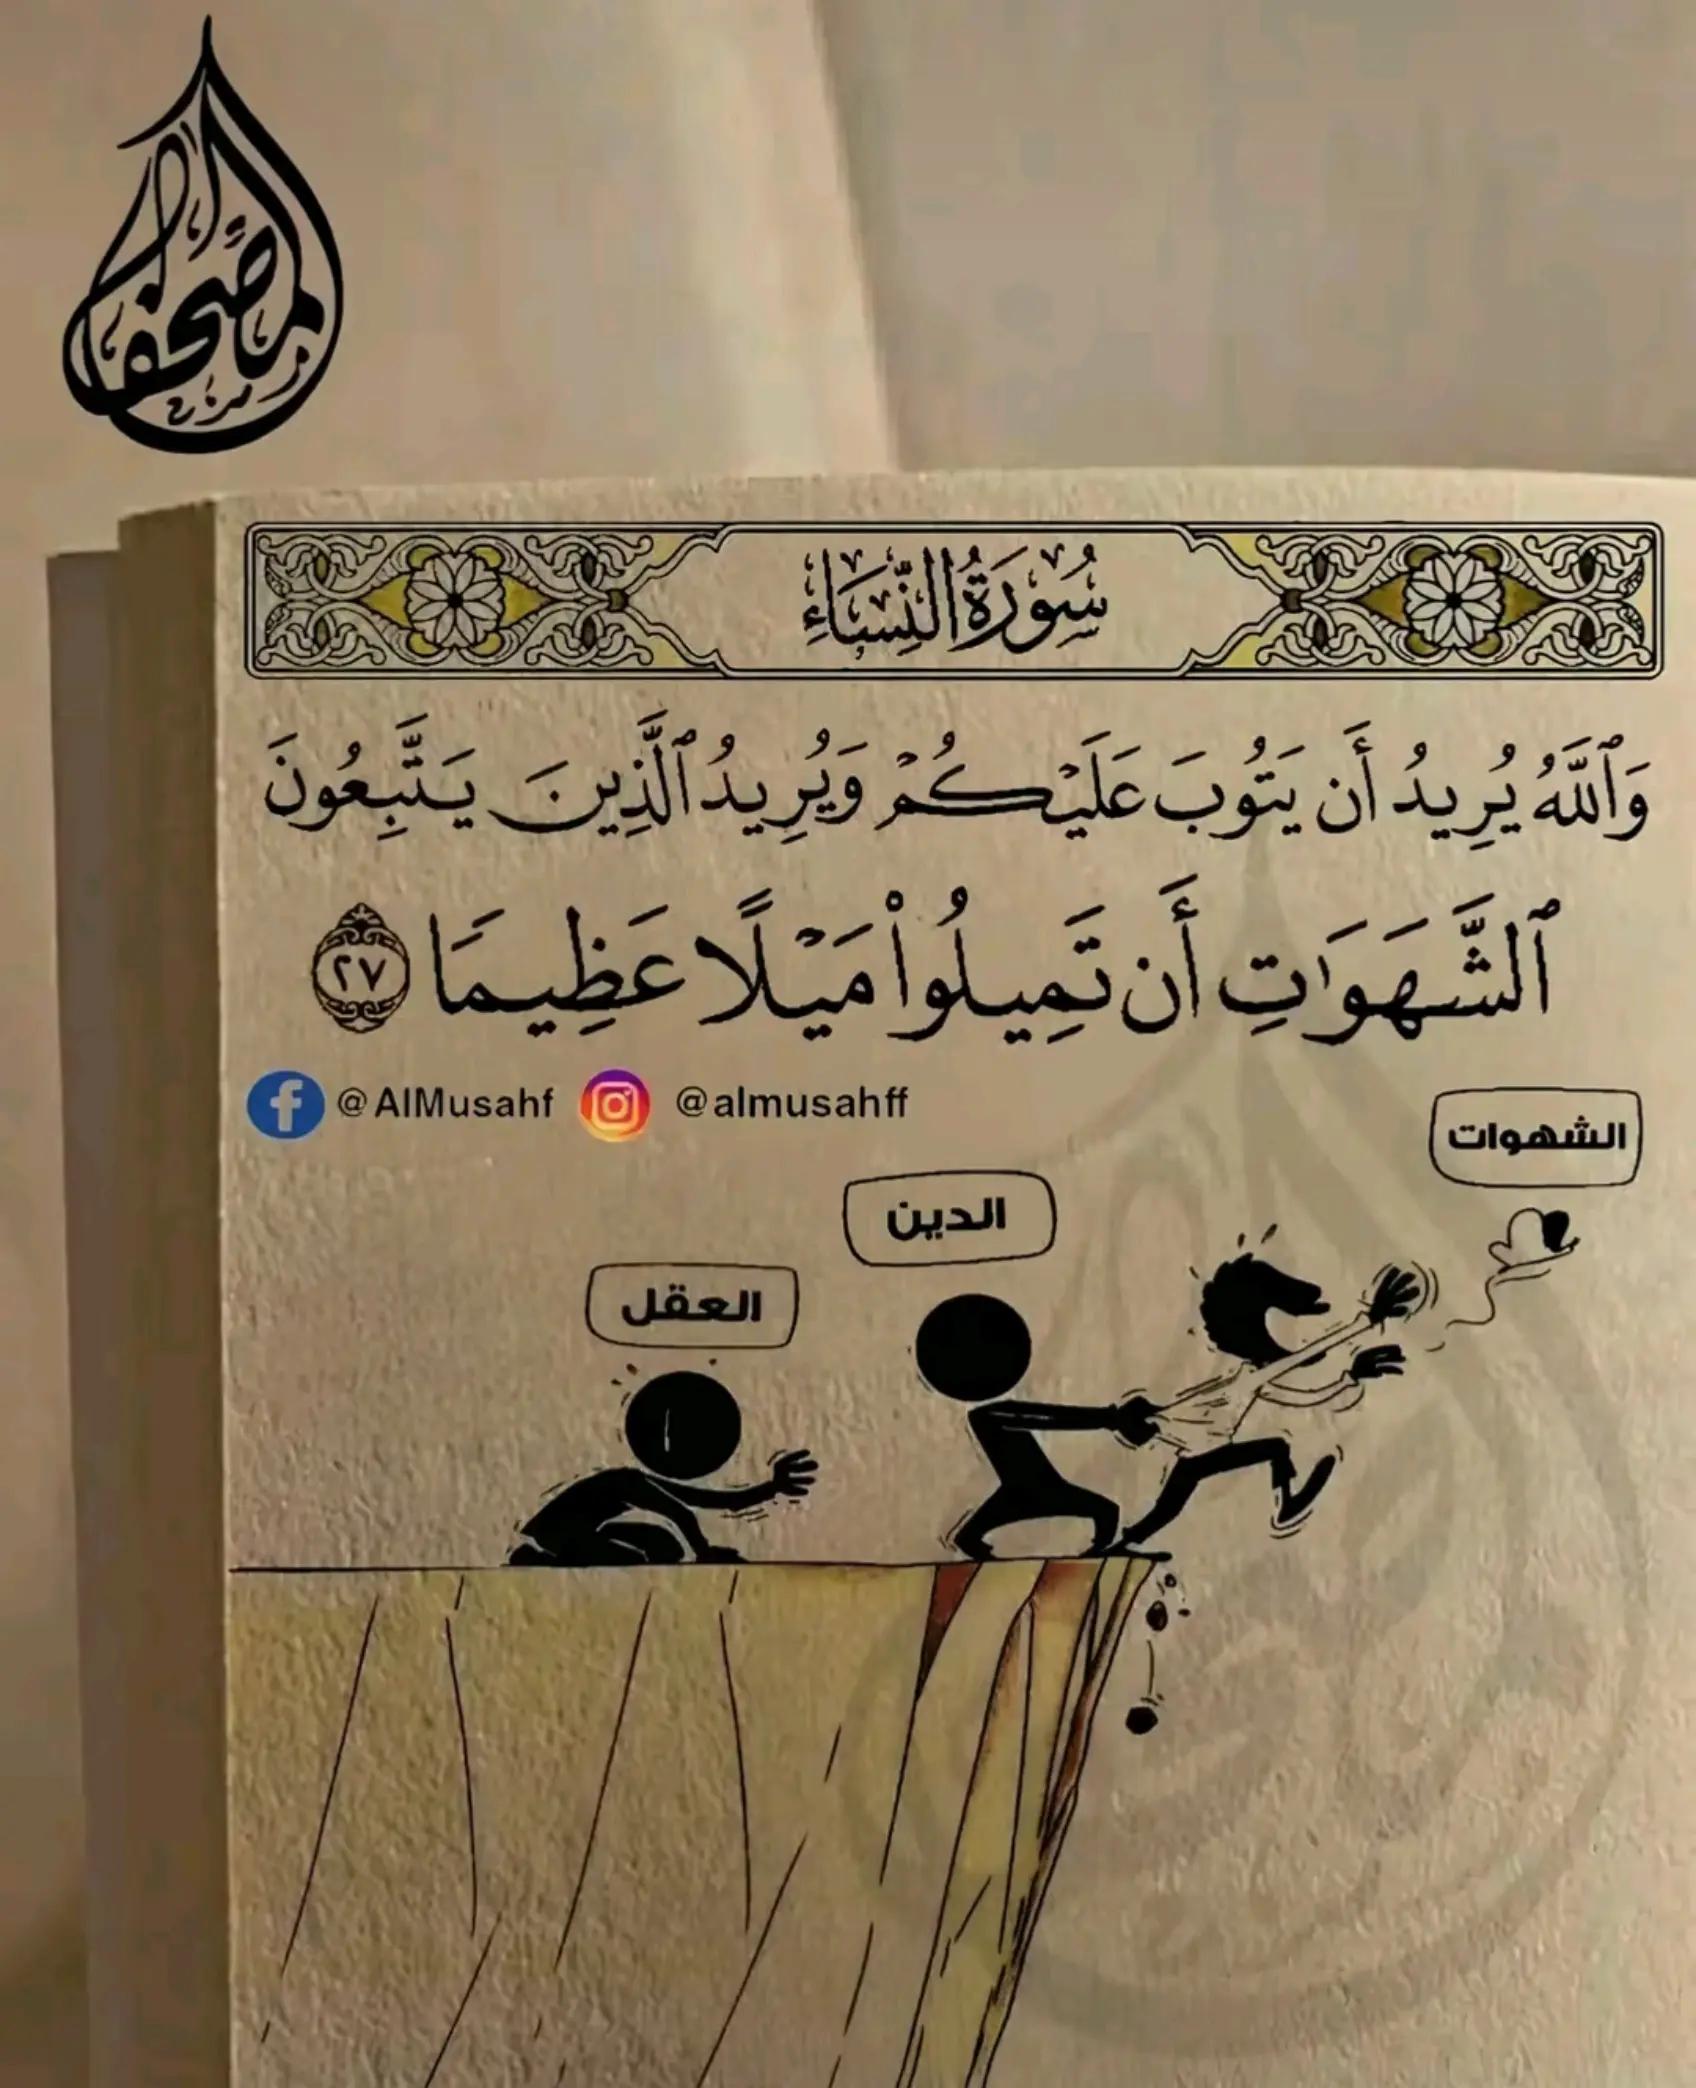 المصحف
سُورَةُ النِّسَاءِ
وَٱللَّهُ يُرِيدُ أَن يَتُوبَ عَلَيْكُمْ وَيُرِيدُ ٱلَّذِينَ يَتَّبِعُونَ
ٱلشَّهَوَٰتِ أَن تَمِيلُوا۟ مَيْلًا عَظِيمًا ٢٧
@AlMusahf @almusahff
الشهوات
الدين
العقل